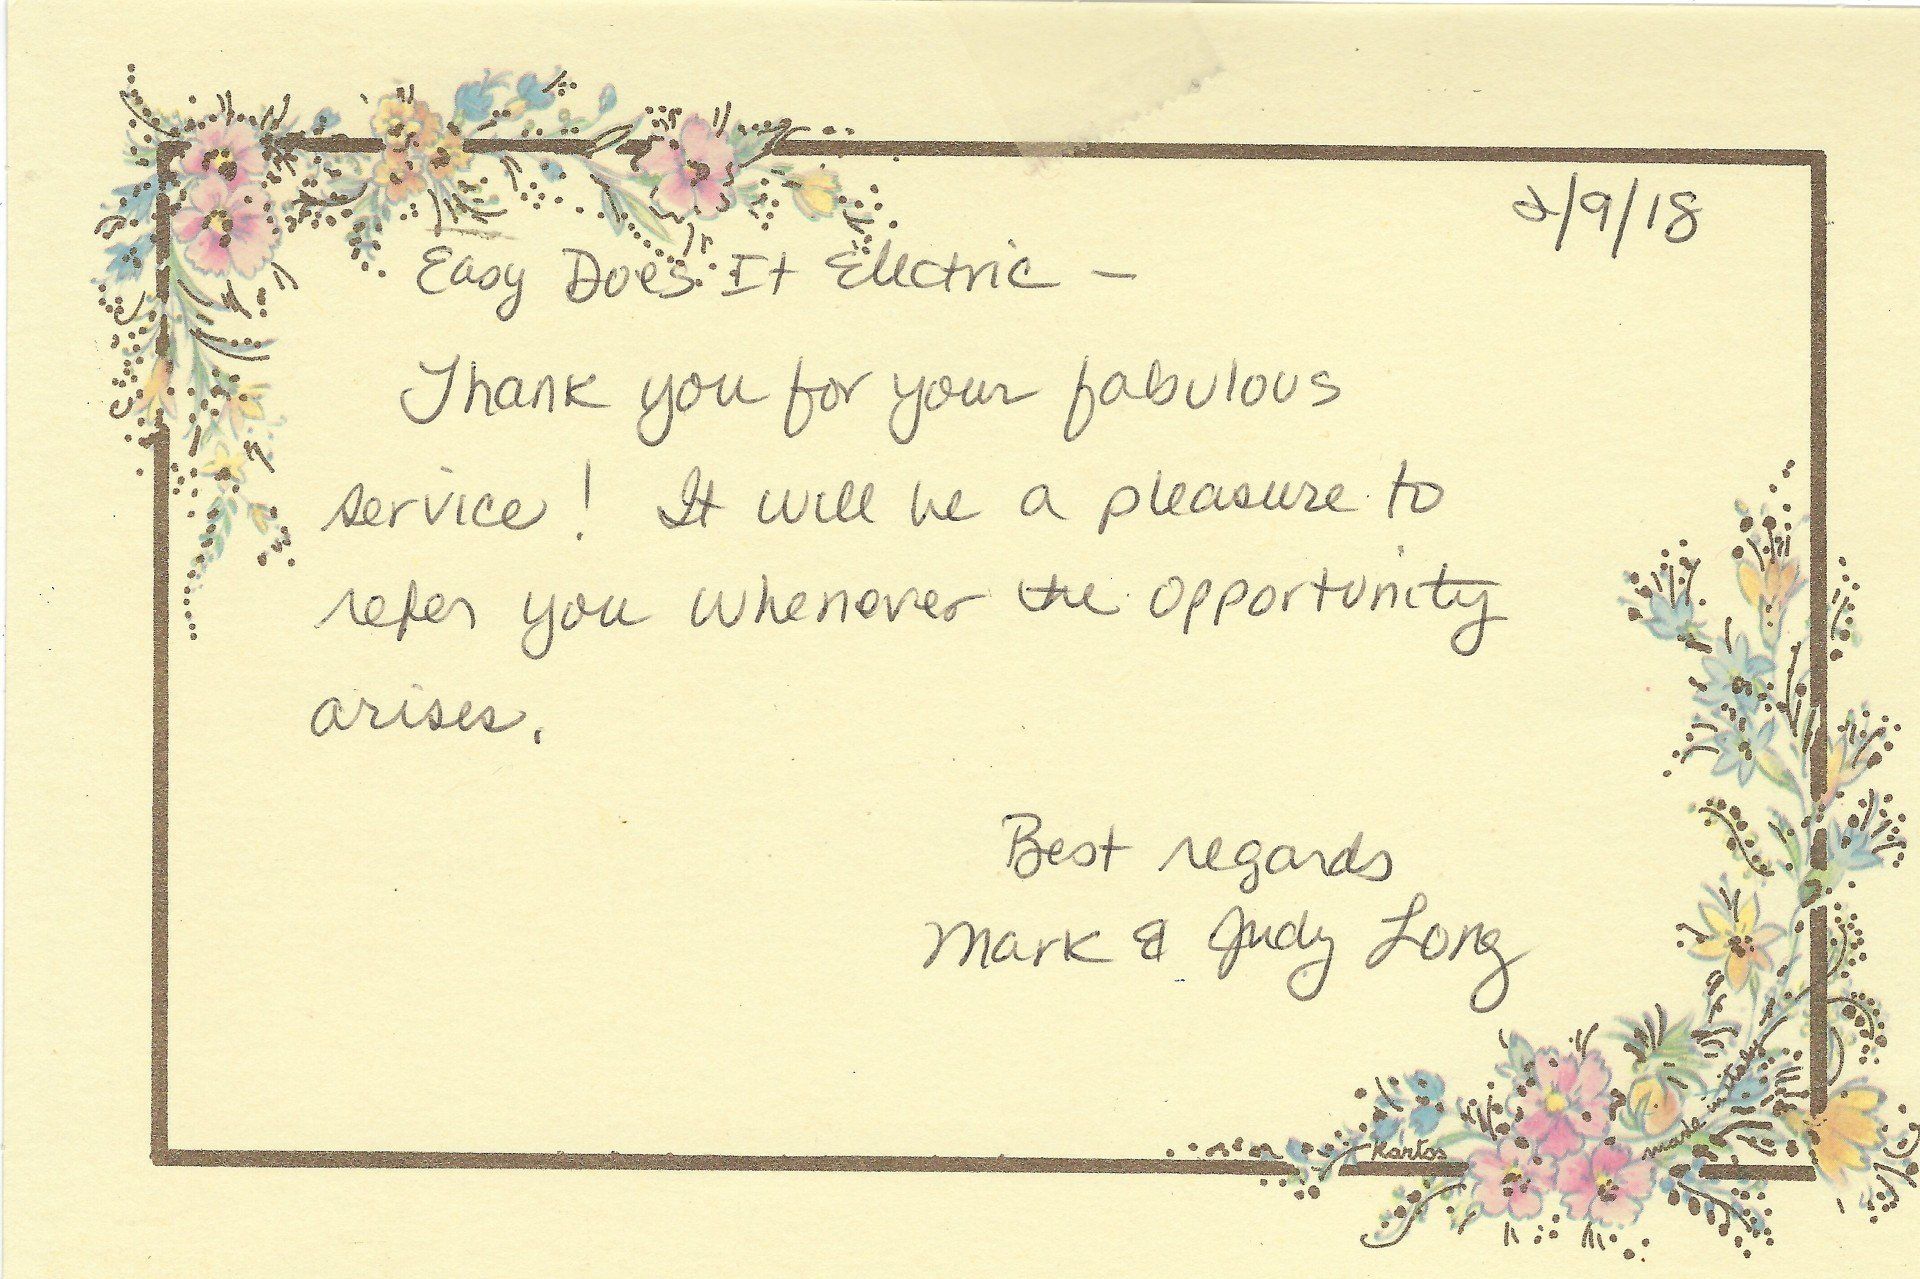 2/9/18
Easy Does It Electric —
Thank you for your fabulous
service! It will be a pleasure to
refer you whenever the opportunity
arises.
Best regards
Mark & Judy Long
Kartos
made in Italy